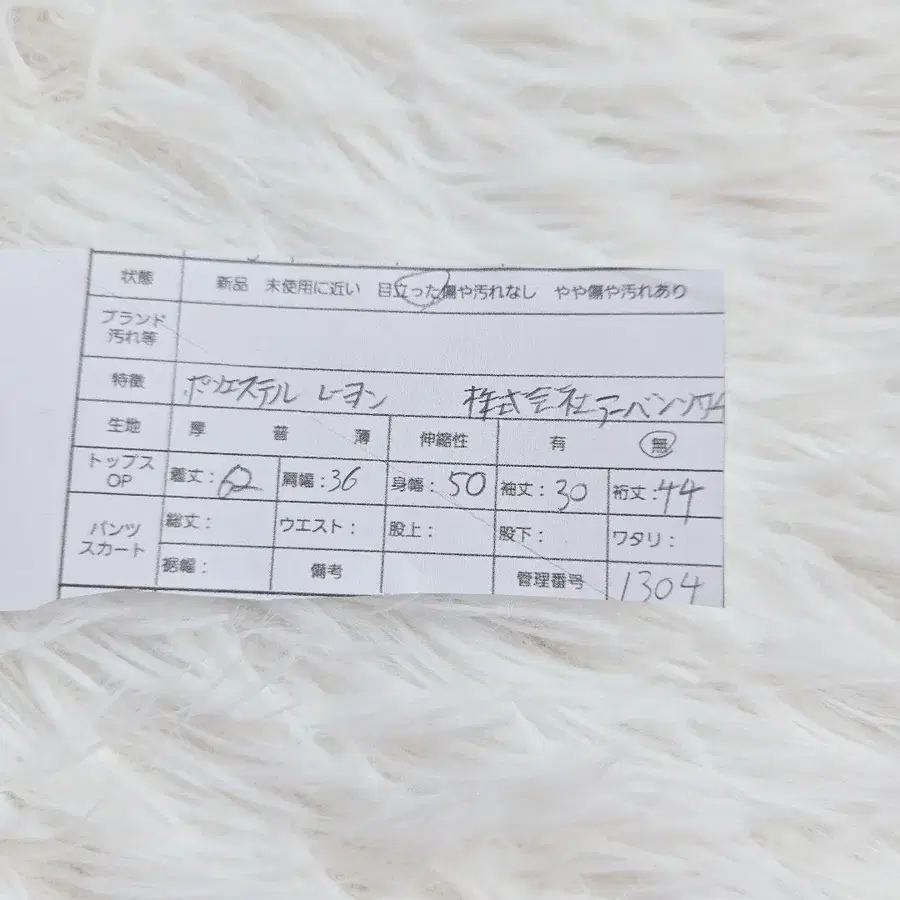 状態 新品 未使用に近い 目立った傷や汚れなし やや傷や汚れあり
ブランド
汚れ等
特徴 ポリエステル レーヨン 株式会社
生地 厚 普 薄 伸縮性 有 無
トップス
OP
着丈：62 肩幅：36 身幅：50 袖丈：30 裄丈：44
パンツ
スカート
総丈： ウエスト： 股上： 股下： ワタリ：
裾幅： 備考 管理番号 1304